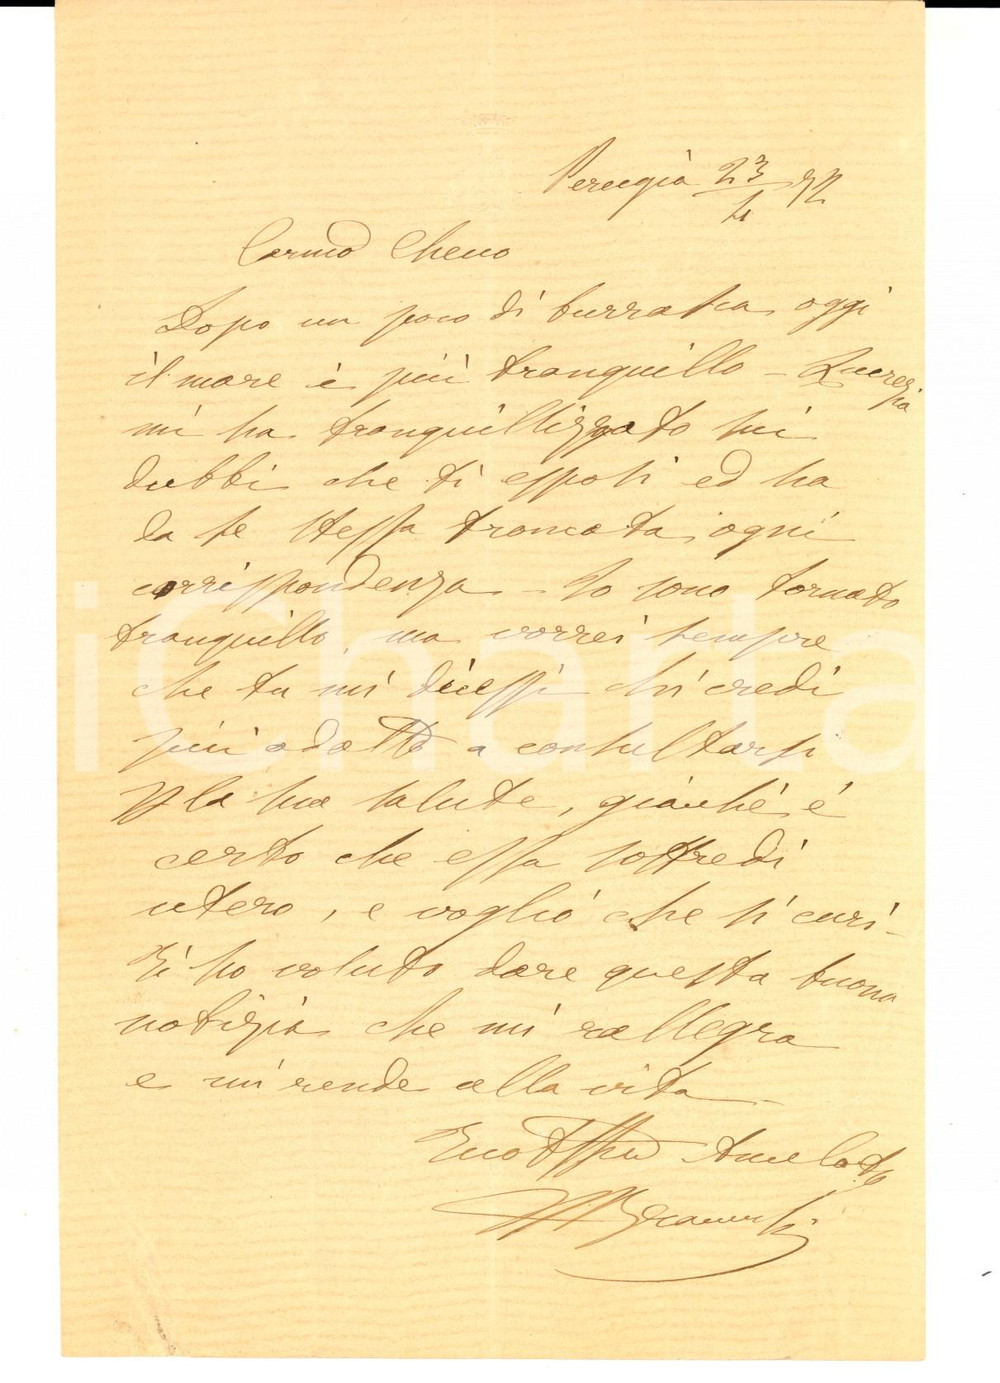 Perugia 23/4 92
Carmo Cheno
Dopo un poco di burrasca oggi
il mare è più tranquillo - Lucrezia
mi ha tranquillizzato sui
dubbi che ti esposi ed ha
da se stessa troncata ogni
corrispondenza - Io sono tornato
tranquillo, ma vorrei sempre
che tu mi dicessi chi credi
più adatto a consultarsi
la sua salute, giacchè è
certo che essa soffre di
utero, e voglio che si curi -
Ti ho voluto dare questa buona
notizia che mi rallegra
e mi rende alla vita -
Tuo
iCharta